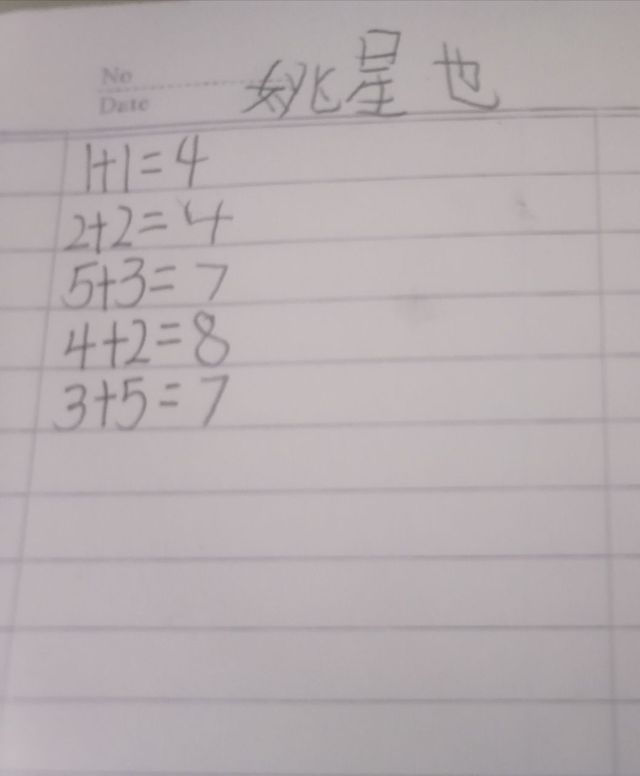 No
姚星也
Date
1+1=4
2+2=4
5+3=7
4+2=8
3+5=7